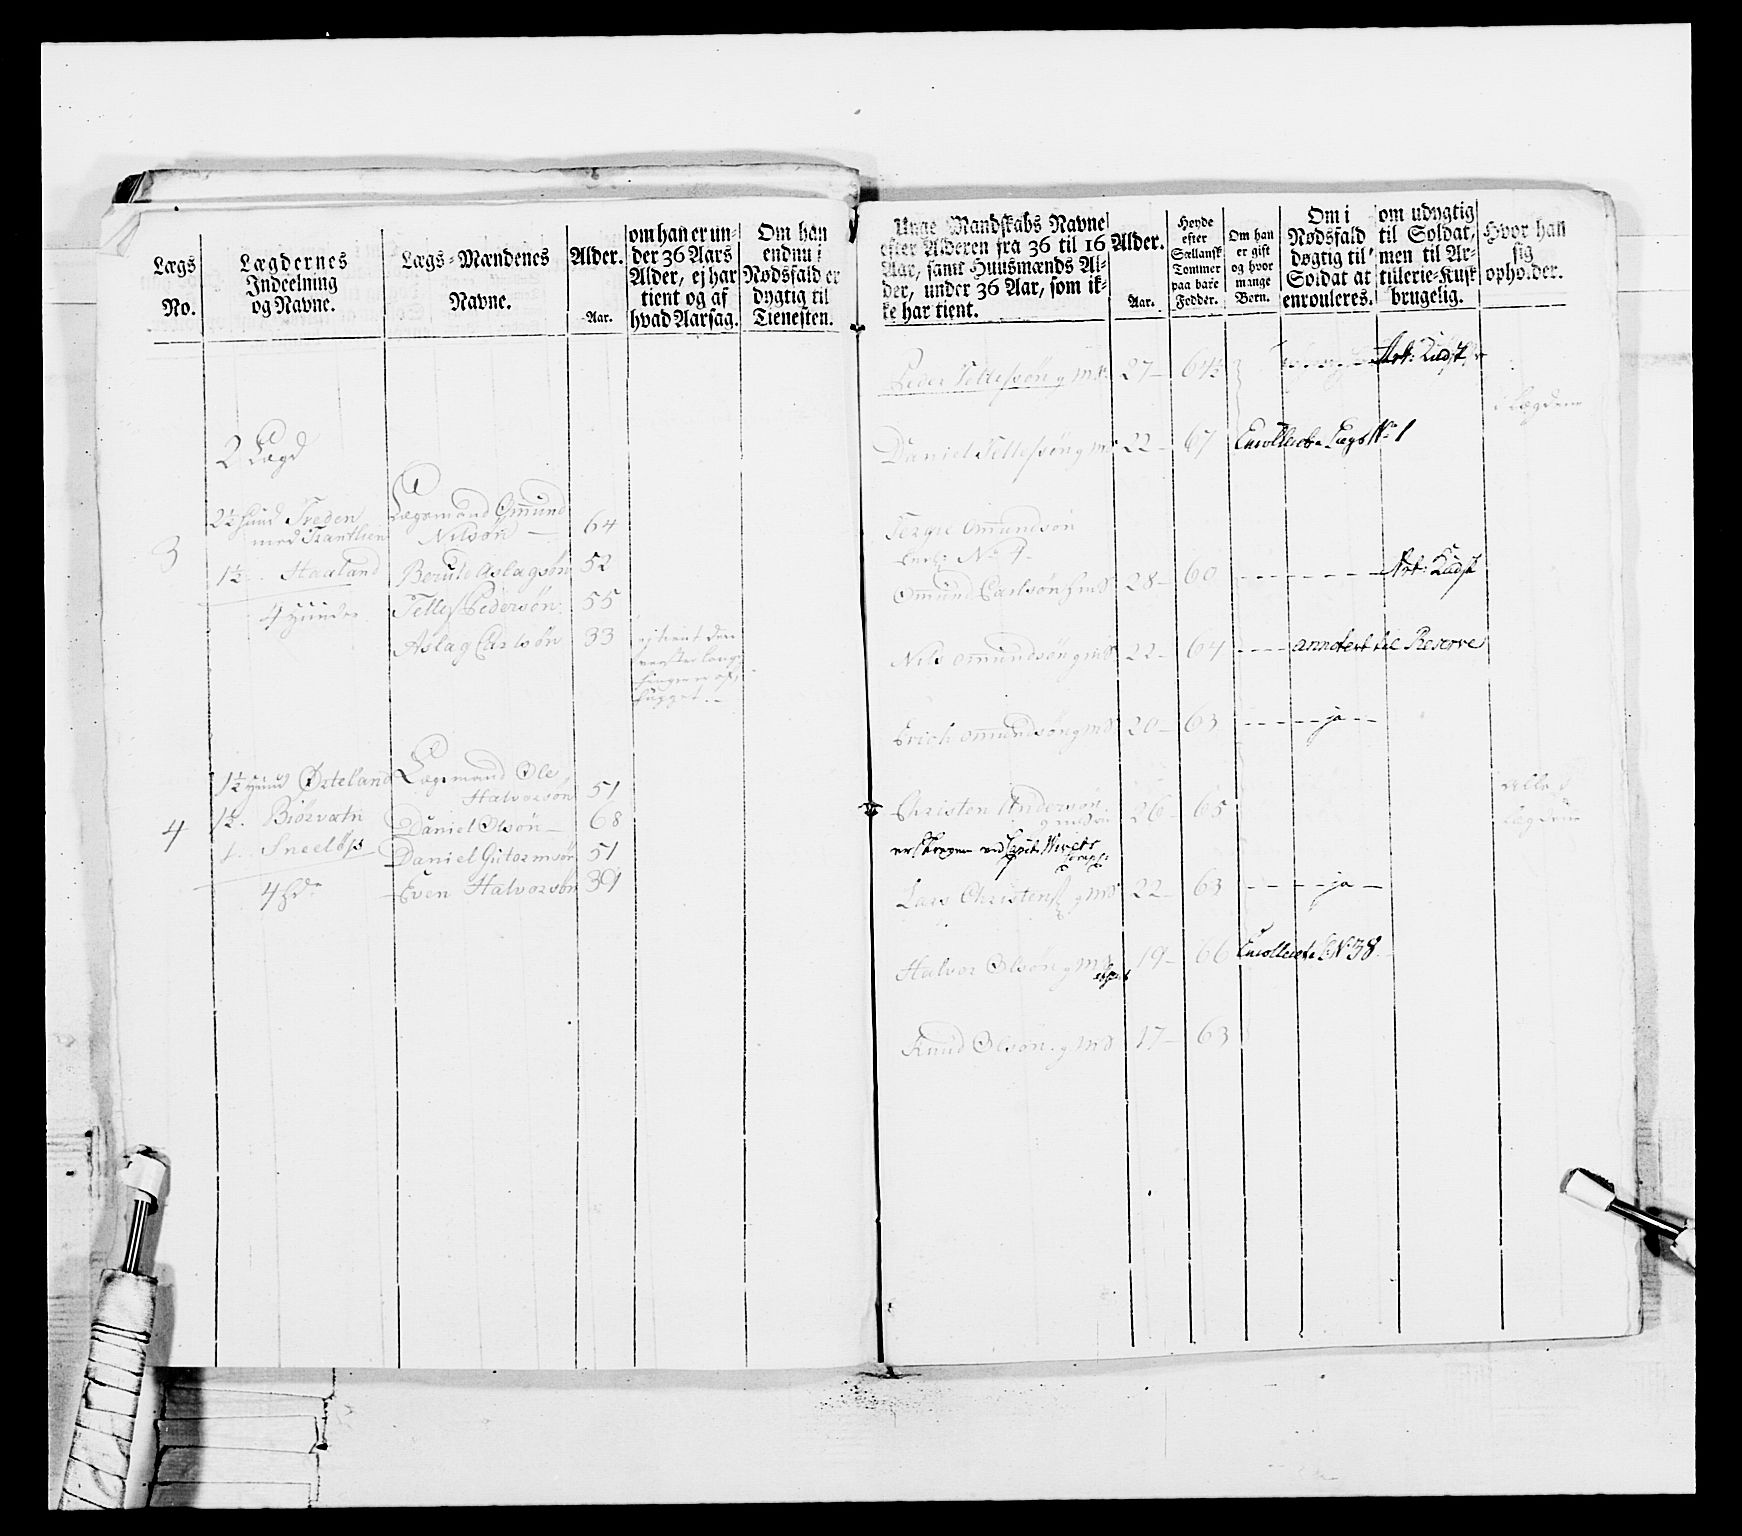 Lægs
No.
Lægdernes
Indeelning
og Navne.
Lægs-Mændenes
Navne.
Alder.
Aar.
om han er un-
der 36 Aars
Alder, ej har
tient og af
hvad Aarsag.
Om han
endnu i
Nødsfald er
dygtig til
Tienesten.
2 Lægd
3
2½ Hund Treden
med
1½ - Haaland
4 Hunder
Lægsmand Omund
Nilsøn - 64
Berulv Aslagsøn 52
Tellef Pedersøn 55
Aslag Carlsøn 33
ej tient den
4
1½ Hund Ørteland
1½ - Biørvatn
1 - Sneeløs
4 Hdr
Lægsmand Ole
Halvorsøn 51
Daniel Olsøn - 68
Daniel Gutormsøn 51
Even Halvorsøn 39
Unge Mandskabs Navne
efter Alderen fra 36 til 16
Aar, samt Huusmænds Al-
der, under 36 Aar, som ik-
ke har tient.
Alder.
Aar.
Høyde
efter
Sællansk
Tommer
paa bare
Fødder.
Om han
er gift
og hvor
mange
Børn.
Om i
Nødsfald
døgtig til
Soldat at
enrouleres.
om udygtig
til Soldat,
men til Ar-
tillerie-Kusk
brugelig.
Hvor han
sig
opholder.
Peder Tellefsøn g md 27 - 64½ Art: Kudsk
i Lægdene
Daniel Tellefsøn g md 22 - 67 Enrolleret Lægd No 1
Tergie Omundsøn
No 4 -
Omund Carlsøn g md 28 - 60 - - - - - - Art: Kudsk
Nils Omundsøn g md 22 - 64 - - - - annotert til Reserve
Erich Omundsøn g md 20 - 63 - - - - - ja - -
Christen Andersøn
g md 26 - 65
Alle i
Lægdene
Lars Christens g md 22 - 63 - - - - - ja -
Halvor Olsøn g md 19 - 66 Enrolleret No 38
Knud Olsøn g md 17 - 63